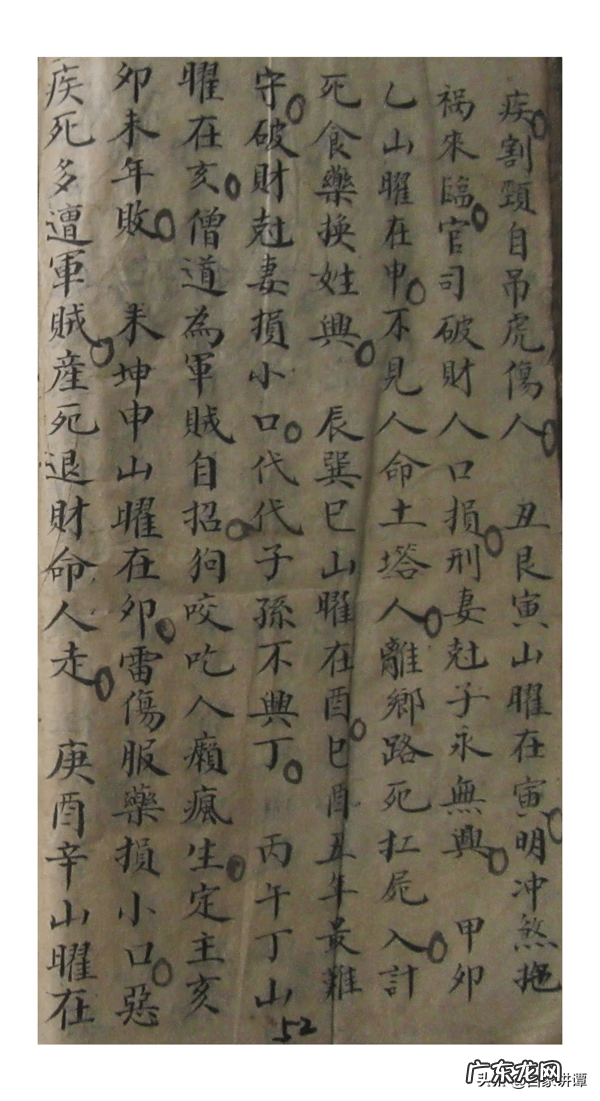 疾割頸自吊虎傷人　丑艮寅山曜在寅明冲煞拖
禍來臨官司破財人口損刑妻尅子永無興　甲卯
乙山曜在申不見人命土塔人離鄉路死扛屍入計
死食藥換姓興　辰巽巳山曜在酉巳酉丑年最難
守破財尅妻損小口代代子孫不興丁　丙午丁山
曜在亥僧道為軍賊自招狗咬吃人癩瘋生定主亥
卯未年敗　未坤申山曜在卯雷傷服藥損小口惡
疾死多遭軍賊産死退財命人走　庚酉辛山曜在
52
广东龙网